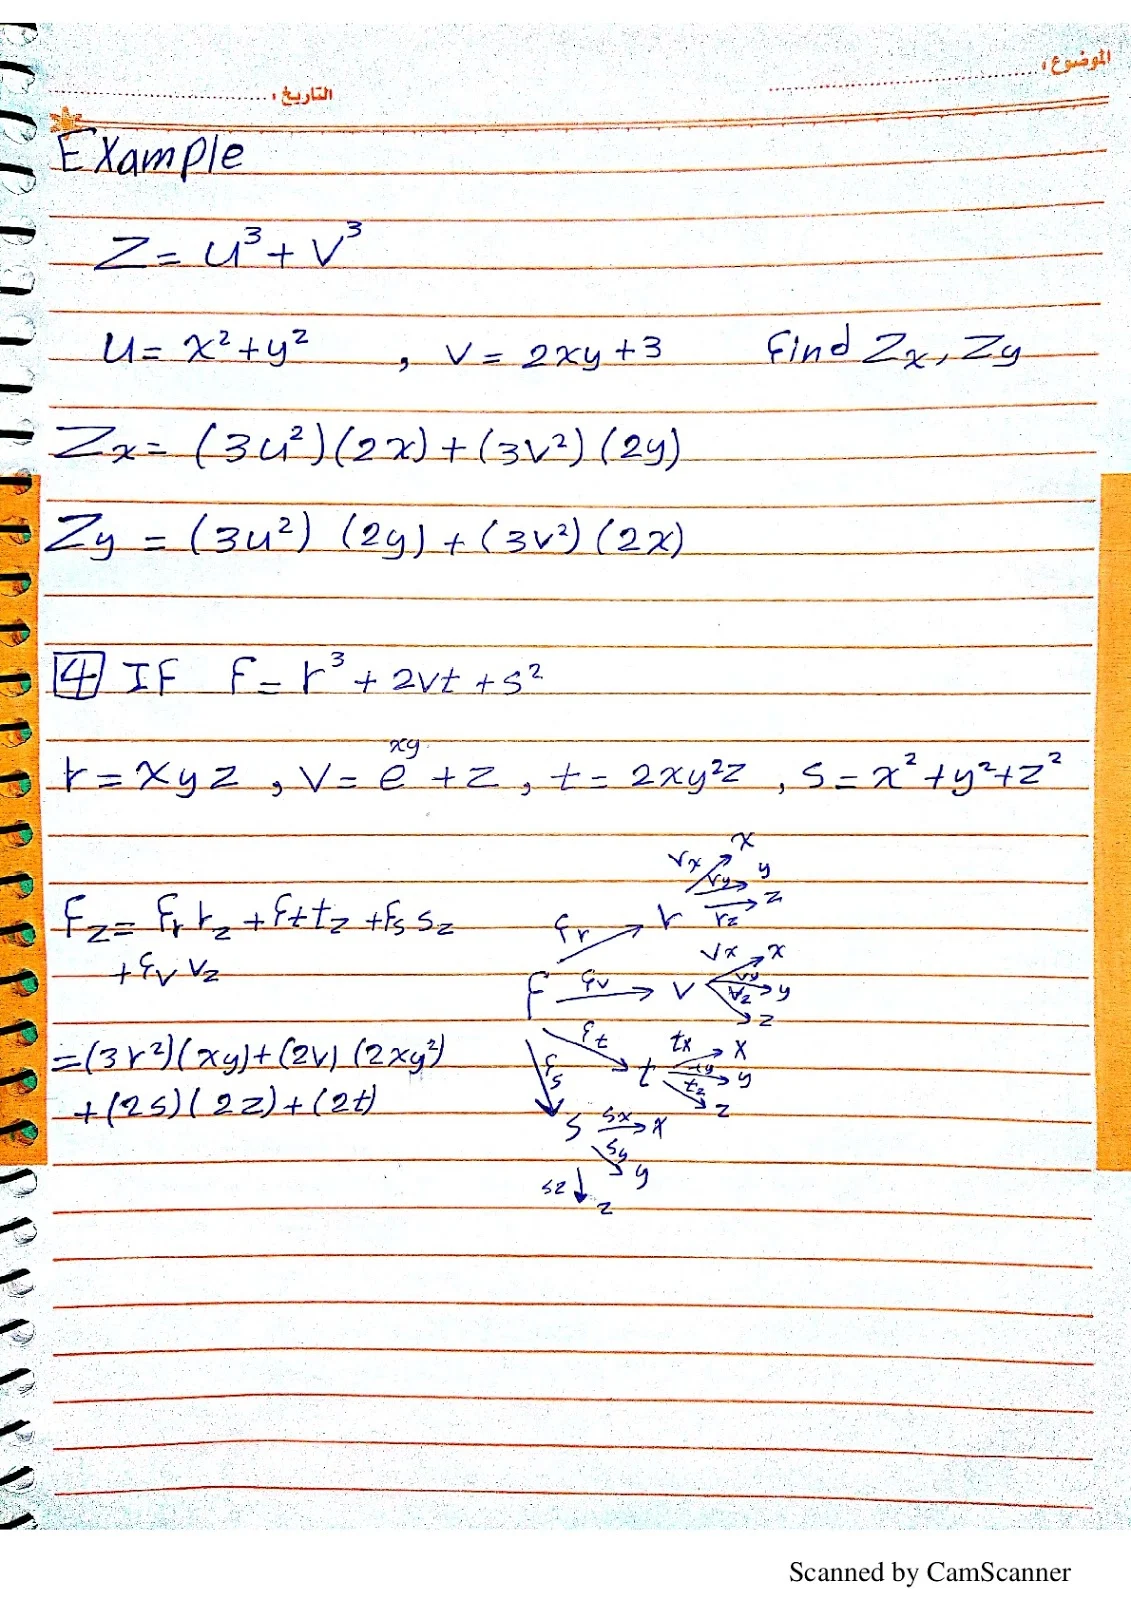 الموضوع :
التاريخ :
Example
Z = u³ + v³
u = x² + y² , v = 2xy + 3 find Zx, Zy
Zx = (3u²)(2x) + (3v²)(2y)
Zy = (3u²) (2y) + (3v²) (2x)
4 IF F = r³ + 2vt + s²
r = xyz , v = e^xy + z , t = 2xy²z , s = x² + y² + z²
Fz = Fr rz + Ft tz + Fs sz
+ Fv vz
= (3r²)(xy) + (2v) (2xy²)
+ (2s)(2z) + (2t)
vx x
vy y
rz z
Fr r
vx x
F Fv v vy y
vz z
Ft tx x
t ty y
tz z
Fs
s sx x
sy y
sz z
Scanned by CamScanner